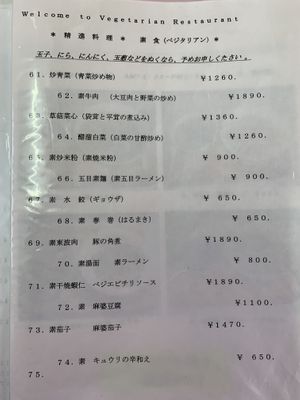 Welcome to Vegetarian Restaurant
＊ 精進料理 ＊ 素 食 (ベジタリアン) ＊
玉子、にら、にんにく、玉葱などをぬくなら、予めお申しください。
61. 炒青菜 (青菜炒め物) ￥1260.
62. 素牛肉 (大豆肉と野菜の炒め) ￥1890.
63. 草菇菜心 (袋茸と平茸の煮込み) ￥1360.
64. 醋溜白菜 (白菜の甘酢炒め) ￥1260.
65. 素炒米粉 (素焼米粉) ￥ 900.
66. 五目素麺 (素五目ラーメン) ￥ 900.
67. 素 水 餃 (ギョウザ) ￥ 650.
68. 素 春 巻 (はるまき) ￥ 650.
69. 素東坡肉 豚の角煮 ￥1890.
70. 素湯面 素ラーメン ￥ 800.
71. 素干焼蝦仁 ベジエビチリソース ￥1890.
72. 素 麻婆豆腐 ￥1100.
73. 素茄子 麻婆茄子 ￥1470.
74. 素 キュウリの辛和え ￥ 650.
75.